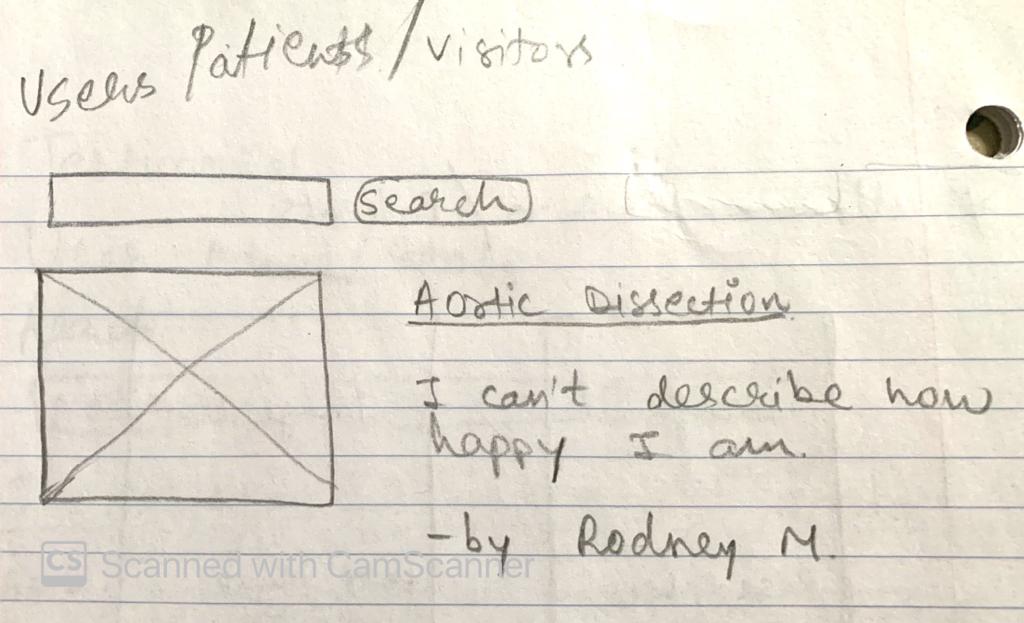 Users Patients/visitors
Search
Aortic Dissection
I can't describe how
happy I am.
-by Rodney M.
CS Scanned with CamScanner